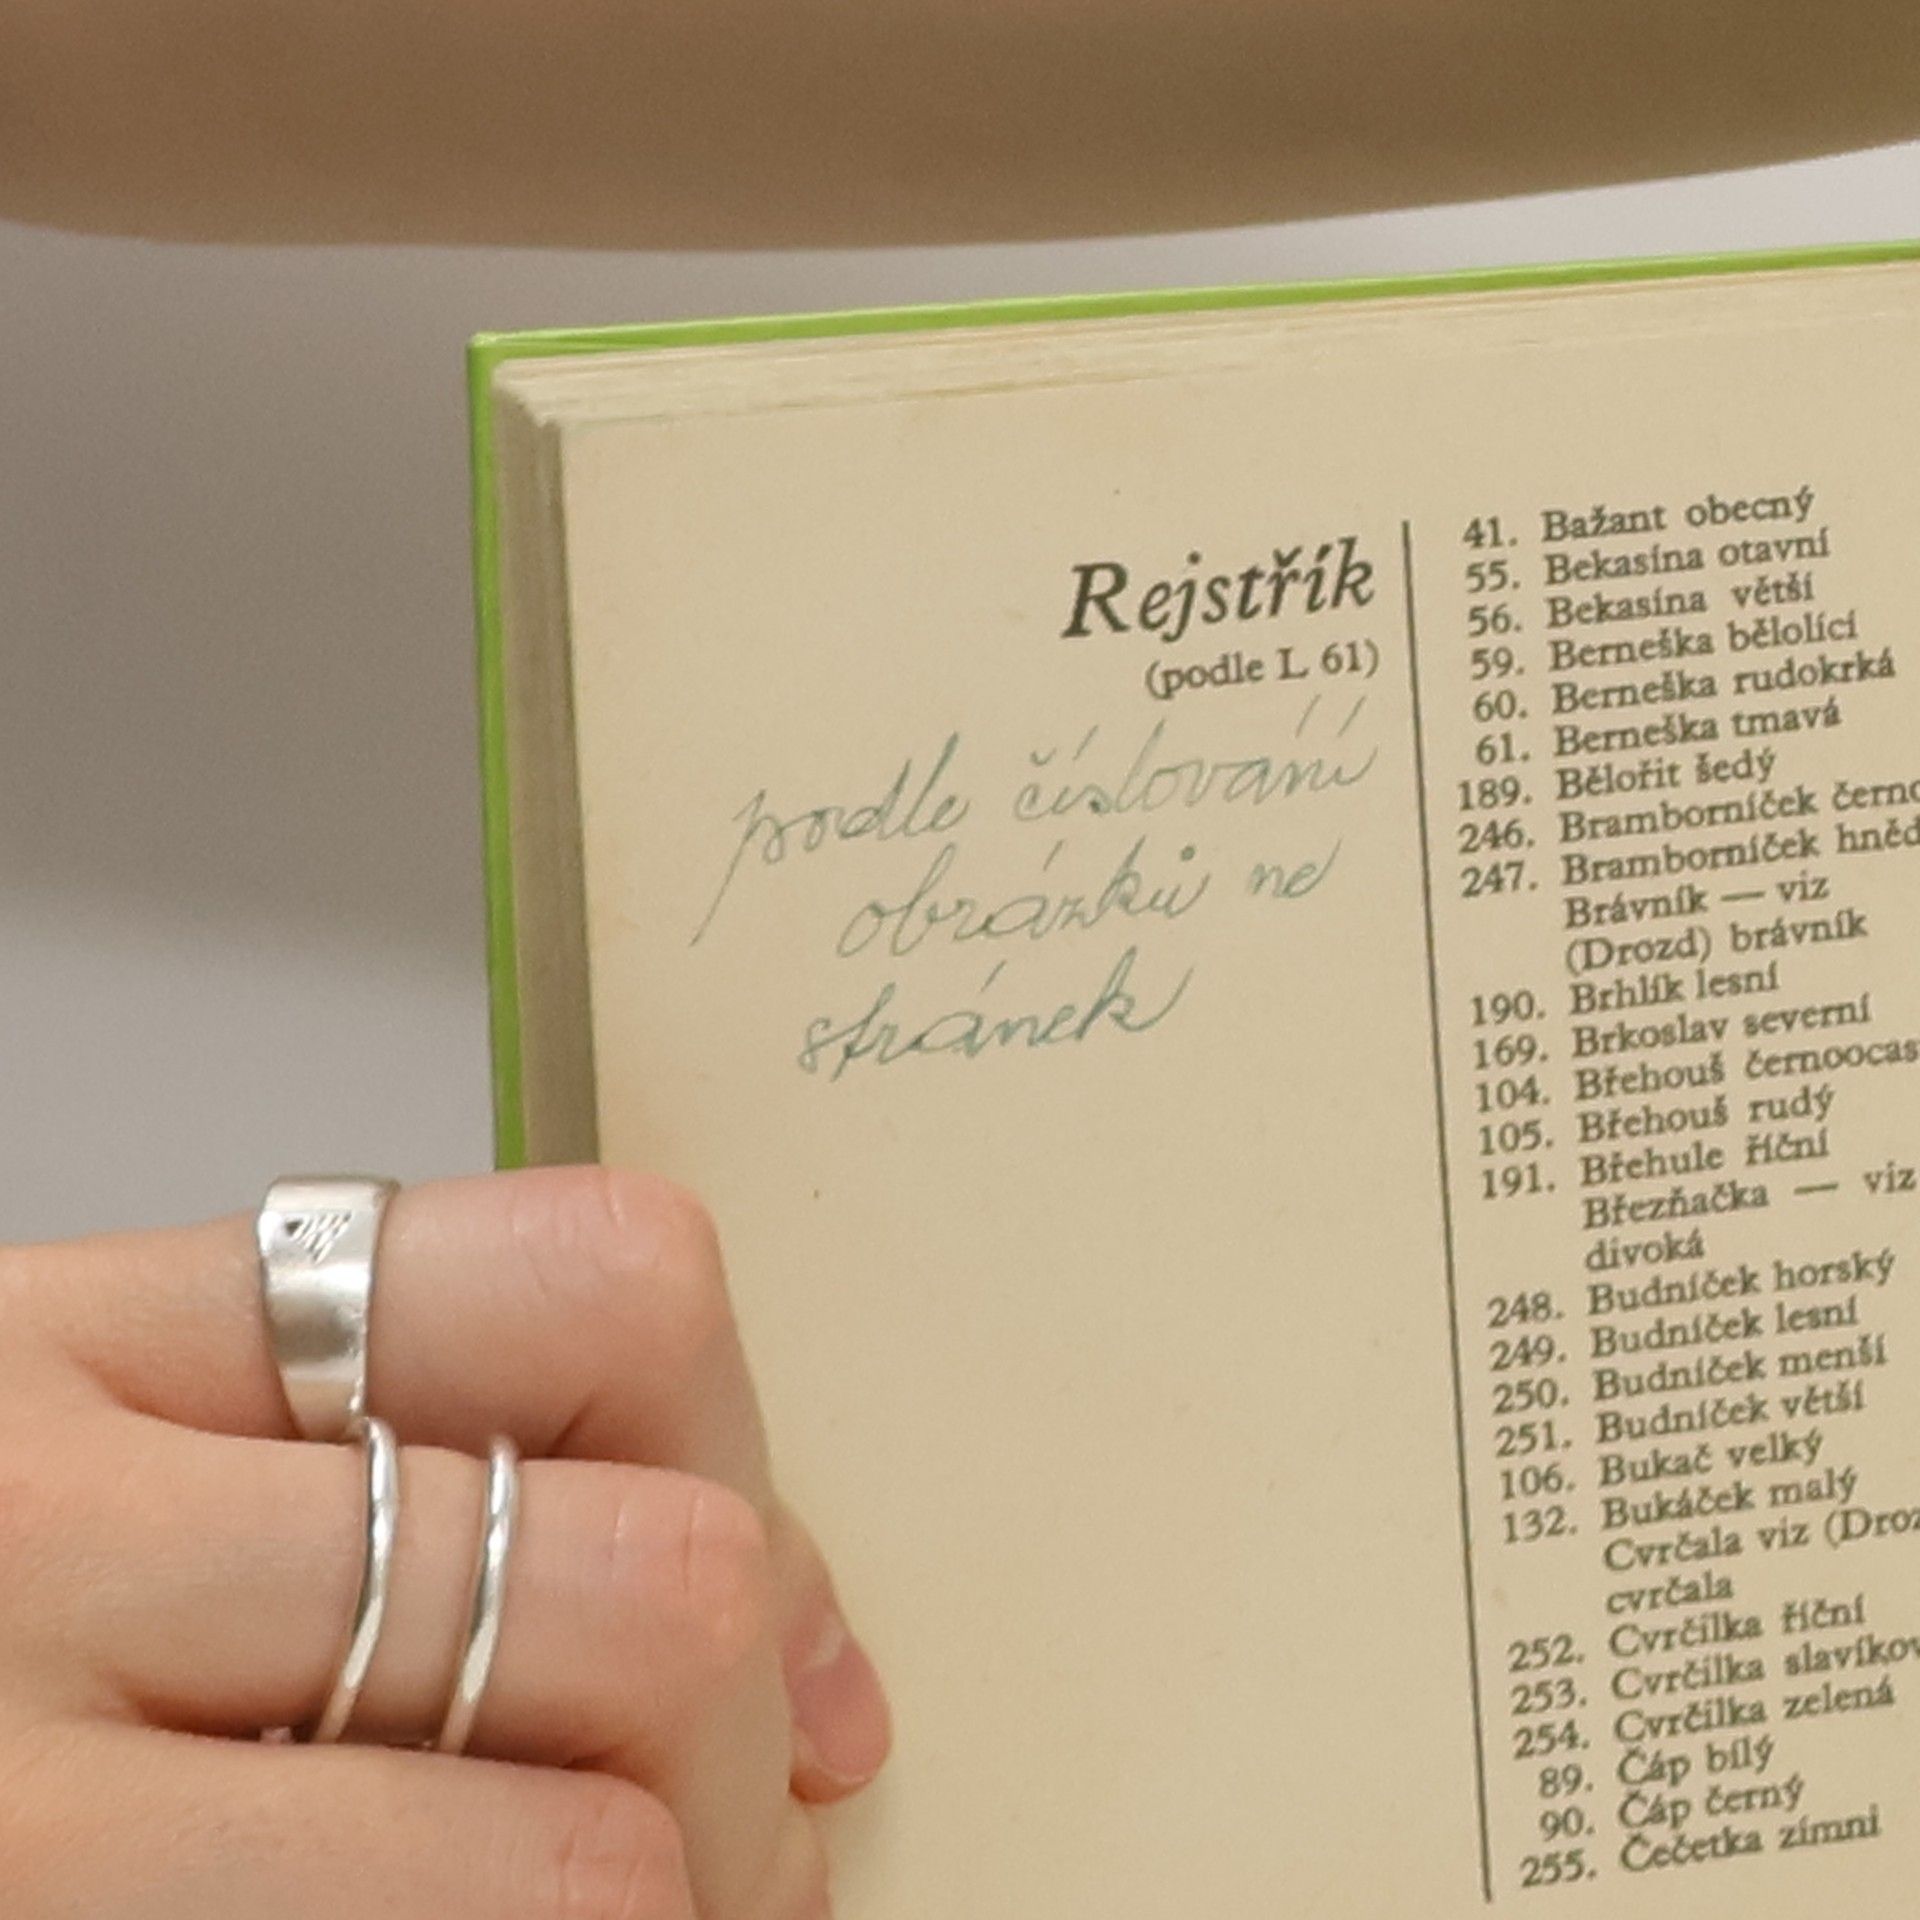 Rejstřík
(podle L 61)
podle číslování
obrázků ne
stránek
41. Bažant obecný
55. Bekasína otavní
56. Bekasína větší
59. Berneška bělolící
60. Berneška rudokrká
61. Berneška tmavá
189. Bělořit šedý
246. Bramborníček černo
247. Bramborníček hněd
Brávník — viz
(Drozd) brávník
190. Brhlík lesní
169. Brkoslav severní
104. Břehouš černoocas
105. Břehouš rudý
191. Břehule říční
Březňačka — viz
divoká
248. Budníček horský
249. Budníček lesní
250. Budníček menší
251. Budníček větší
106. Bukač velký
132. Bukáček malý
Cvrčala viz (Droz
cvrčala
252. Cvrčilka říční
253. Cvrčilka slavíkov
254. Cvrčilka zelená
89. Čáp bílý
90. Čáp černý
255. Čečetka zimni